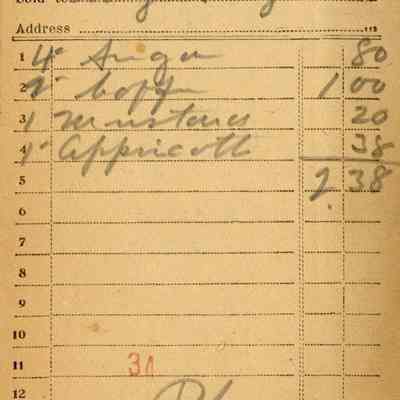 Address
1 4# Sugar 80
2 2# Coffee 1 00
3 1 Mustard 20
4 1# Appricott 38
5 2 38
6
7
8
9
10
11 31
12